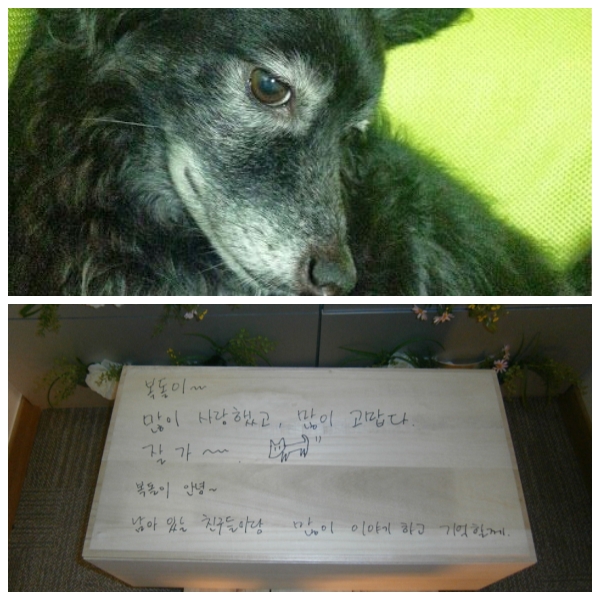 복동이~
많이 사랑했고, 많이 고맙다.
잘 가~
복동이 안녕~
남아 있는 친구들이랑 많이 이야기 하고 기억할게.